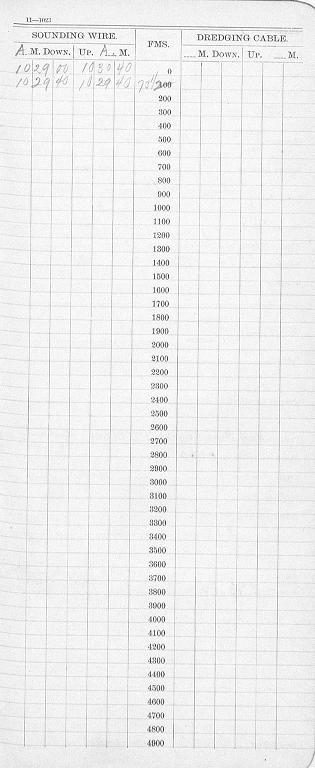 11—1023
SOUNDING WIRE. FMS. DREDGING CABLE.
A. M. DOWN. UP. A. M. M. DOWN. UP. M.
10 29 00 10 30 40 0
10 29 40 10 29 40 100
200
300
400
500
600
700
800
900
1000
1100
1200
1300
1400
1500
1600
1700
1800
1900
2000
2100
2200
2300
2400
2500
2600
2700
2800
2900
3000
3100
3200
3300
3400
3500
3600
3700
3800
3900
4000
4100
4200
4300
4400
4500
4600
4700
4800
4900